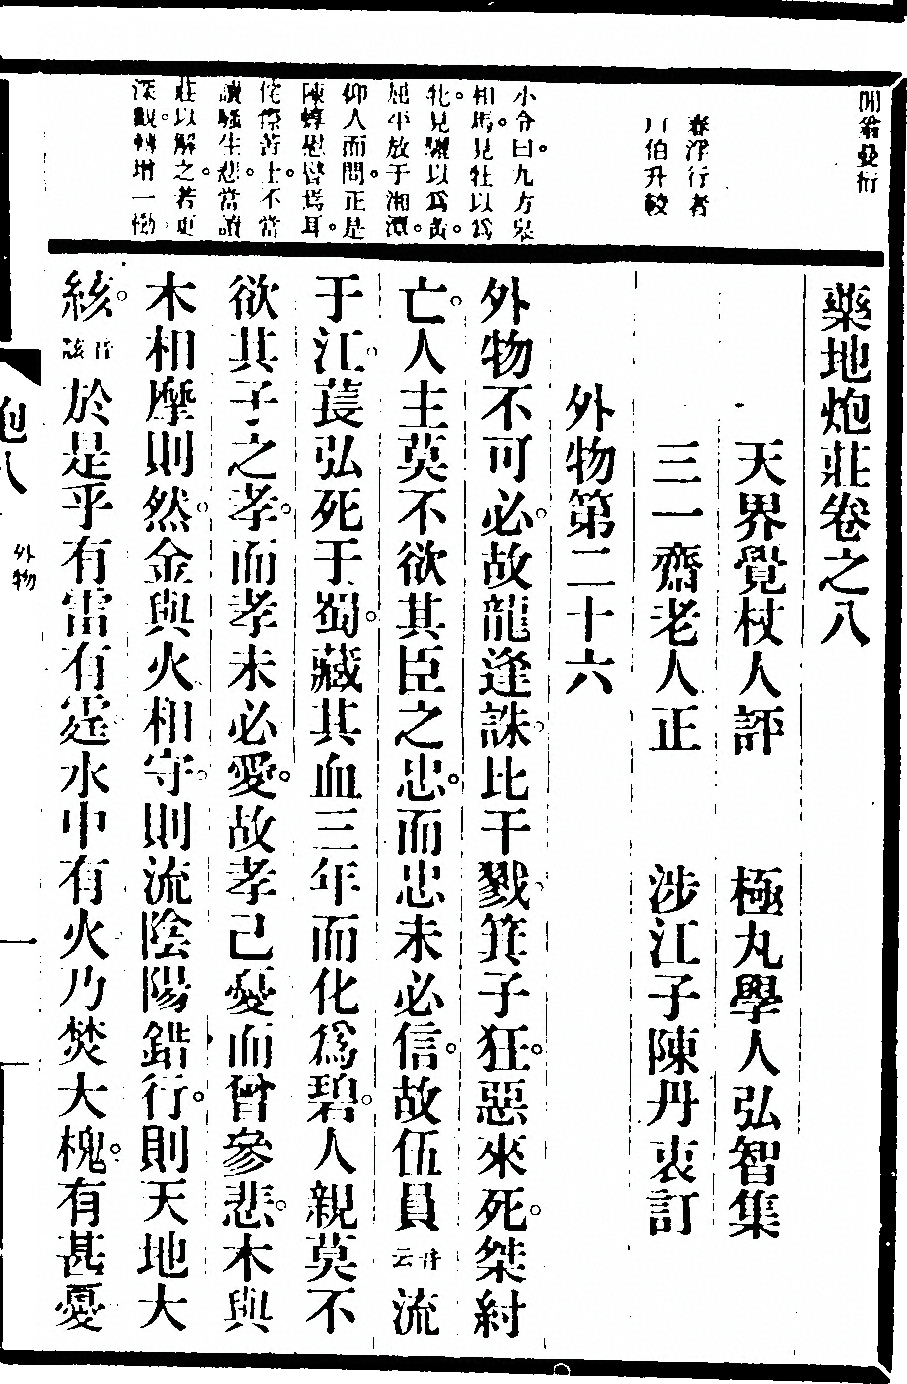 藥地炮莊卷之八
天界覺杖人評　極丸學人弘智集
三一齋老人正　涉江子陳丹衷訂
外物第二十六
外物不可必故龍逢誅比干戮箕子狂惡來死桀紂
亡人主莫不欲其臣之忠而忠未必信故伍員音云流
于江萇弘死于蜀藏其血三年而化爲碧人親莫不
欲其子之孝而孝未必愛故孝己憂而曾參悲木與
木相摩則然金與火相守則流陰陽錯行則天地大
絯音該於是乎有雷有霆水中有火乃焚大槐有甚憂
閒翁曼衍
春浮行者
伯升較
小令曰九方臯
相馬見牡以爲
牝見驪以爲黃
屈平放于湘潭
仰人而問正是
陳蜳慰暋焉耳
侘傺苦士不當
讀騷生悲當讀
莊以解之若更
深觀轉增一慟
炮八
外物
一